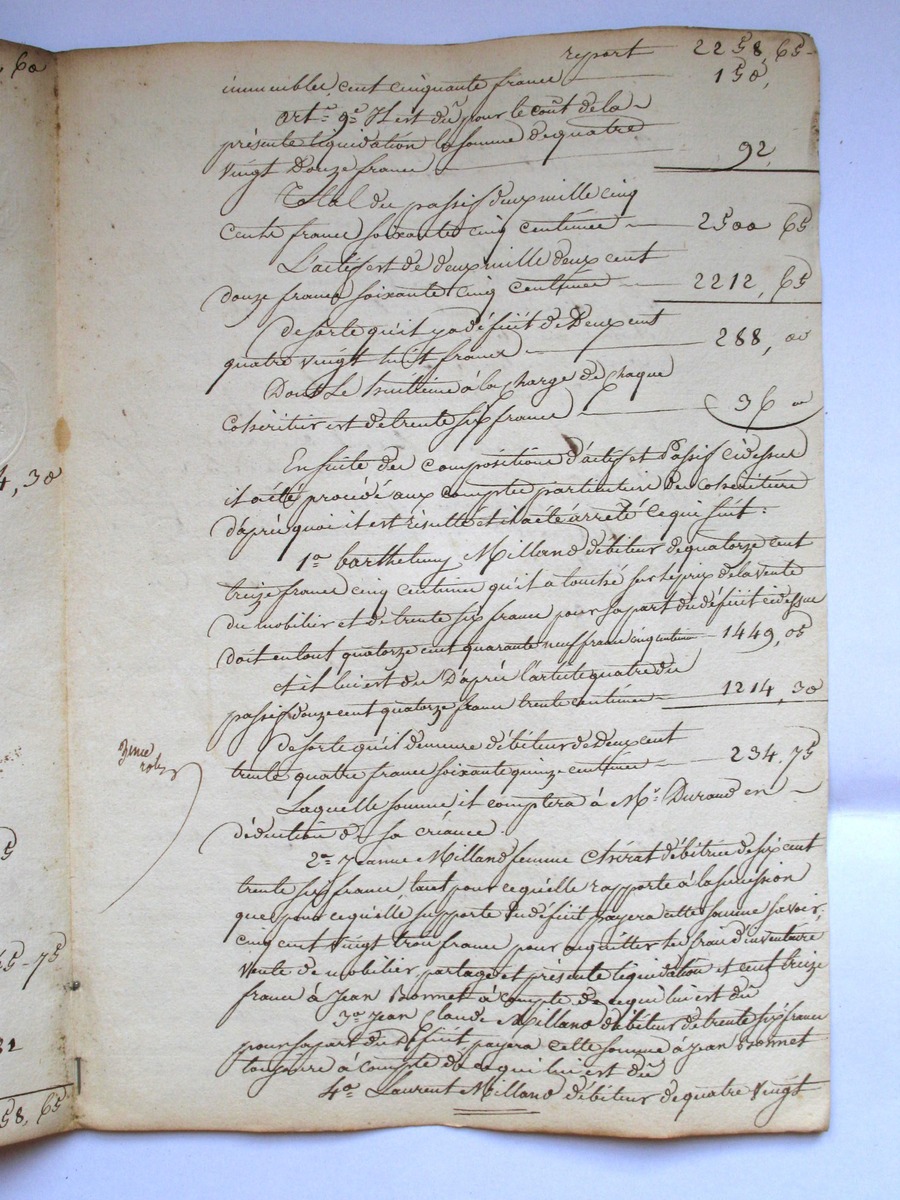 , 60
4, 30
5
45-75
32
58, 65
report 2258, 65
immeubles cent cinquante francs 150,
art.e 9.e Il est du pour le coût de la
présente liquidation la somme de quatre
vingt douze francs 92,
Total du passif deux mille cinq
cents francs soixante cinq centimes 2500 65
L'actif est de deux mille deux cent
douze francs soixante cinq centimes 2212, 65
De sorte qu'il y a déficit de Deux cent
quatre vingt huit francs 288, 00
Dont le huitième à la charge de chaque
cohéritier est de trente six francs 36 00
En suite des compositions d'actif et Passif cidessus
il a été procédé aux comptes particuliers des cohéritiers
d'après quoi il est résulté et il a été arrêté ce qui suit :
1.o barthelemy Milland débiteur de quatorze cent
treize francs cinq centimes qu'il a touché sur le prix de la vente
du mobilier et de trente six francs pour sa part du déficit cidessus
doit en tout quatorze cent quarante neuf francs cinq centimes 1449, 05
et il lui est du D'après l'article quatre du
passif douze cent quatorze francs trente centimes 1214, 30
De sorte qu'il demeure débiteur de Deux cent
trente quatre francs soixante quinze centimes 234. 75
Laquelle somme il comptera à M.r Durand en
déduction de sa créance.
3eme
role
2.o Jeanne Milland femme Chérat débitrice de six cent
trente six francs tant pour ce qu'elle rapporte à la succession
que pour ce qu'elle supporte du déficit payera cette somme savoir,
cinq cent vingt trois francs pour acquitter les frais d'inventaire
vente de mobilier, partage et présente liquidation et cent treize
francs à Jean Bonnet à compte de ce qui lui est du
3.o Jean Claude Milland débiteur de trente six francs
pour sa part du Déficit payera cette somme à Jean Bonnet
à compte de ce qui lui est du
4.o Laurent Milland débiteur de quatre vingt